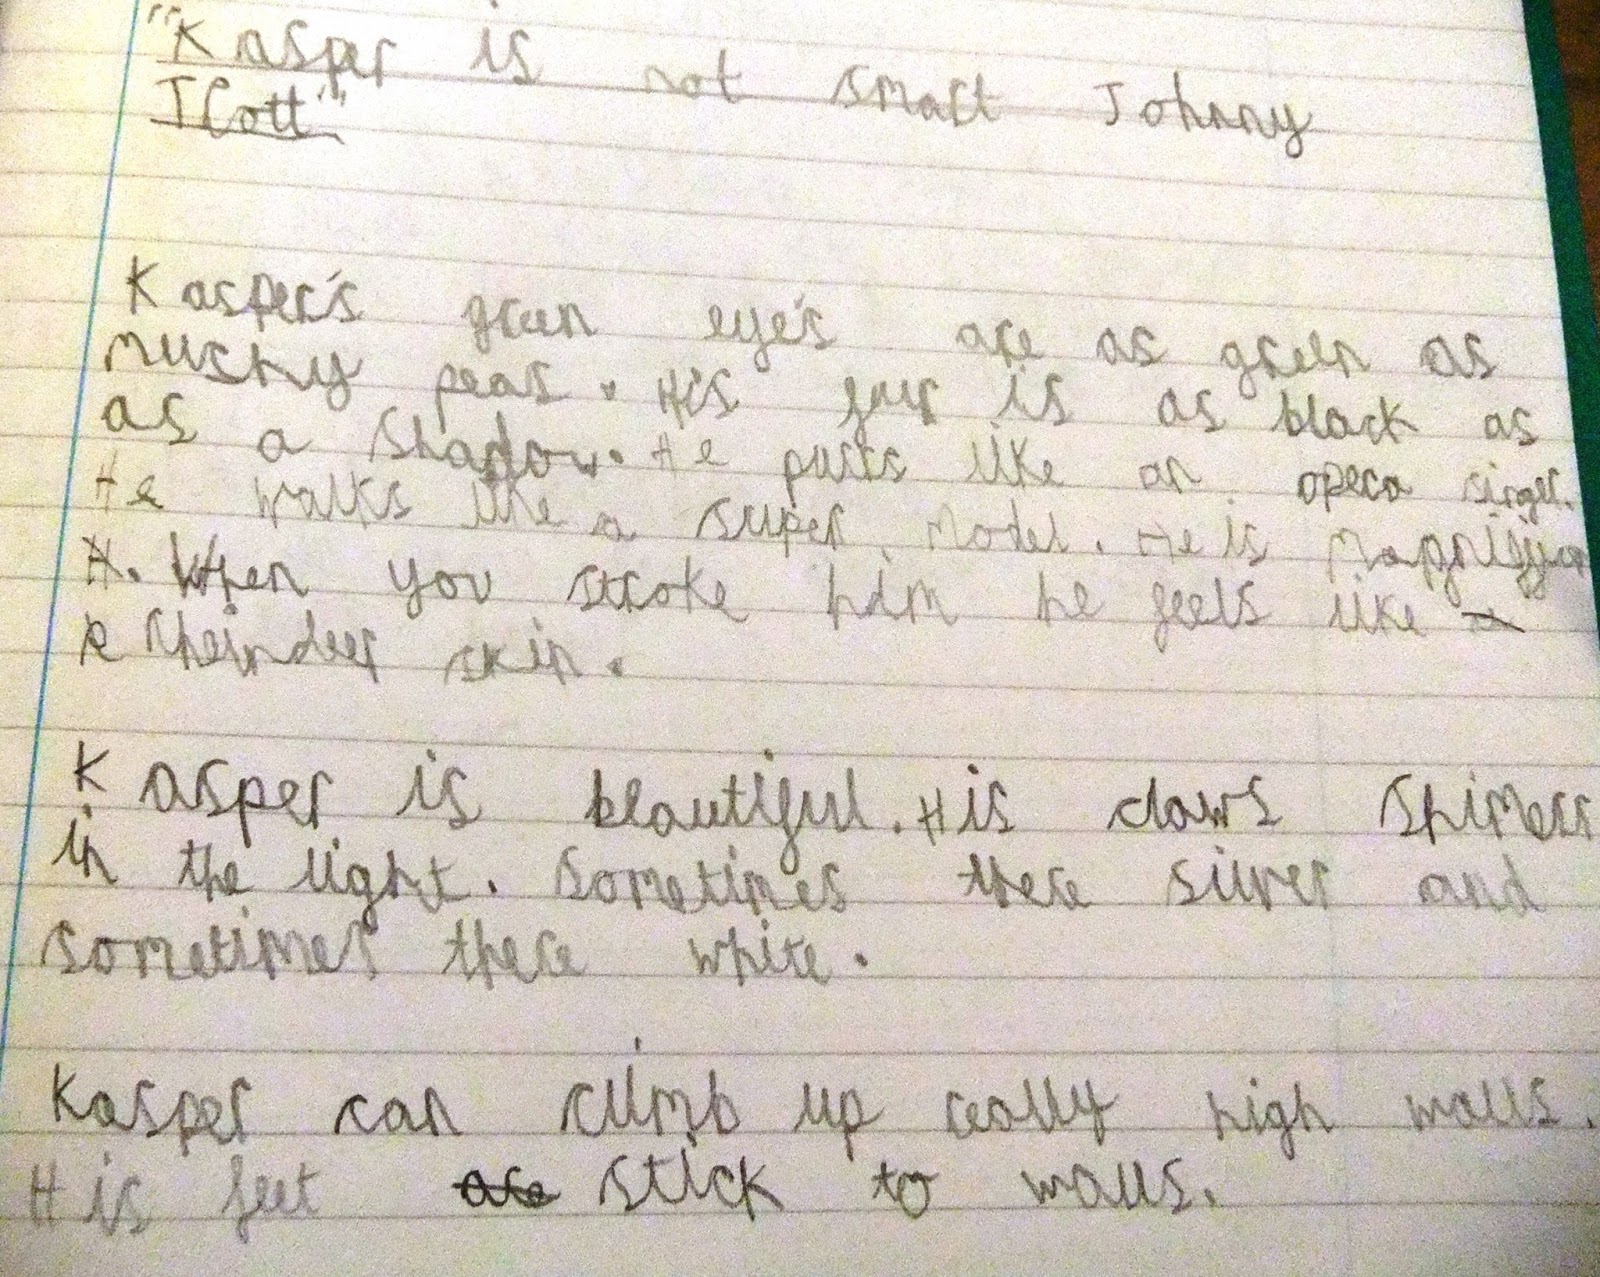 "Kasper is not smart Johnny
Kasper's green eye's are as green as
mushy peas. His fur is as black as
as a shadow. He purrs like an opera singer.
He walks like a super model. He is
When you stroke him he feels like a
Rheindeer skin.
Kasper is beautiful. His claws shimers
in the light. Sometimes there silver and
sometimes there white.
Kasper can climb up really high walls.
His feet are stick to walls.